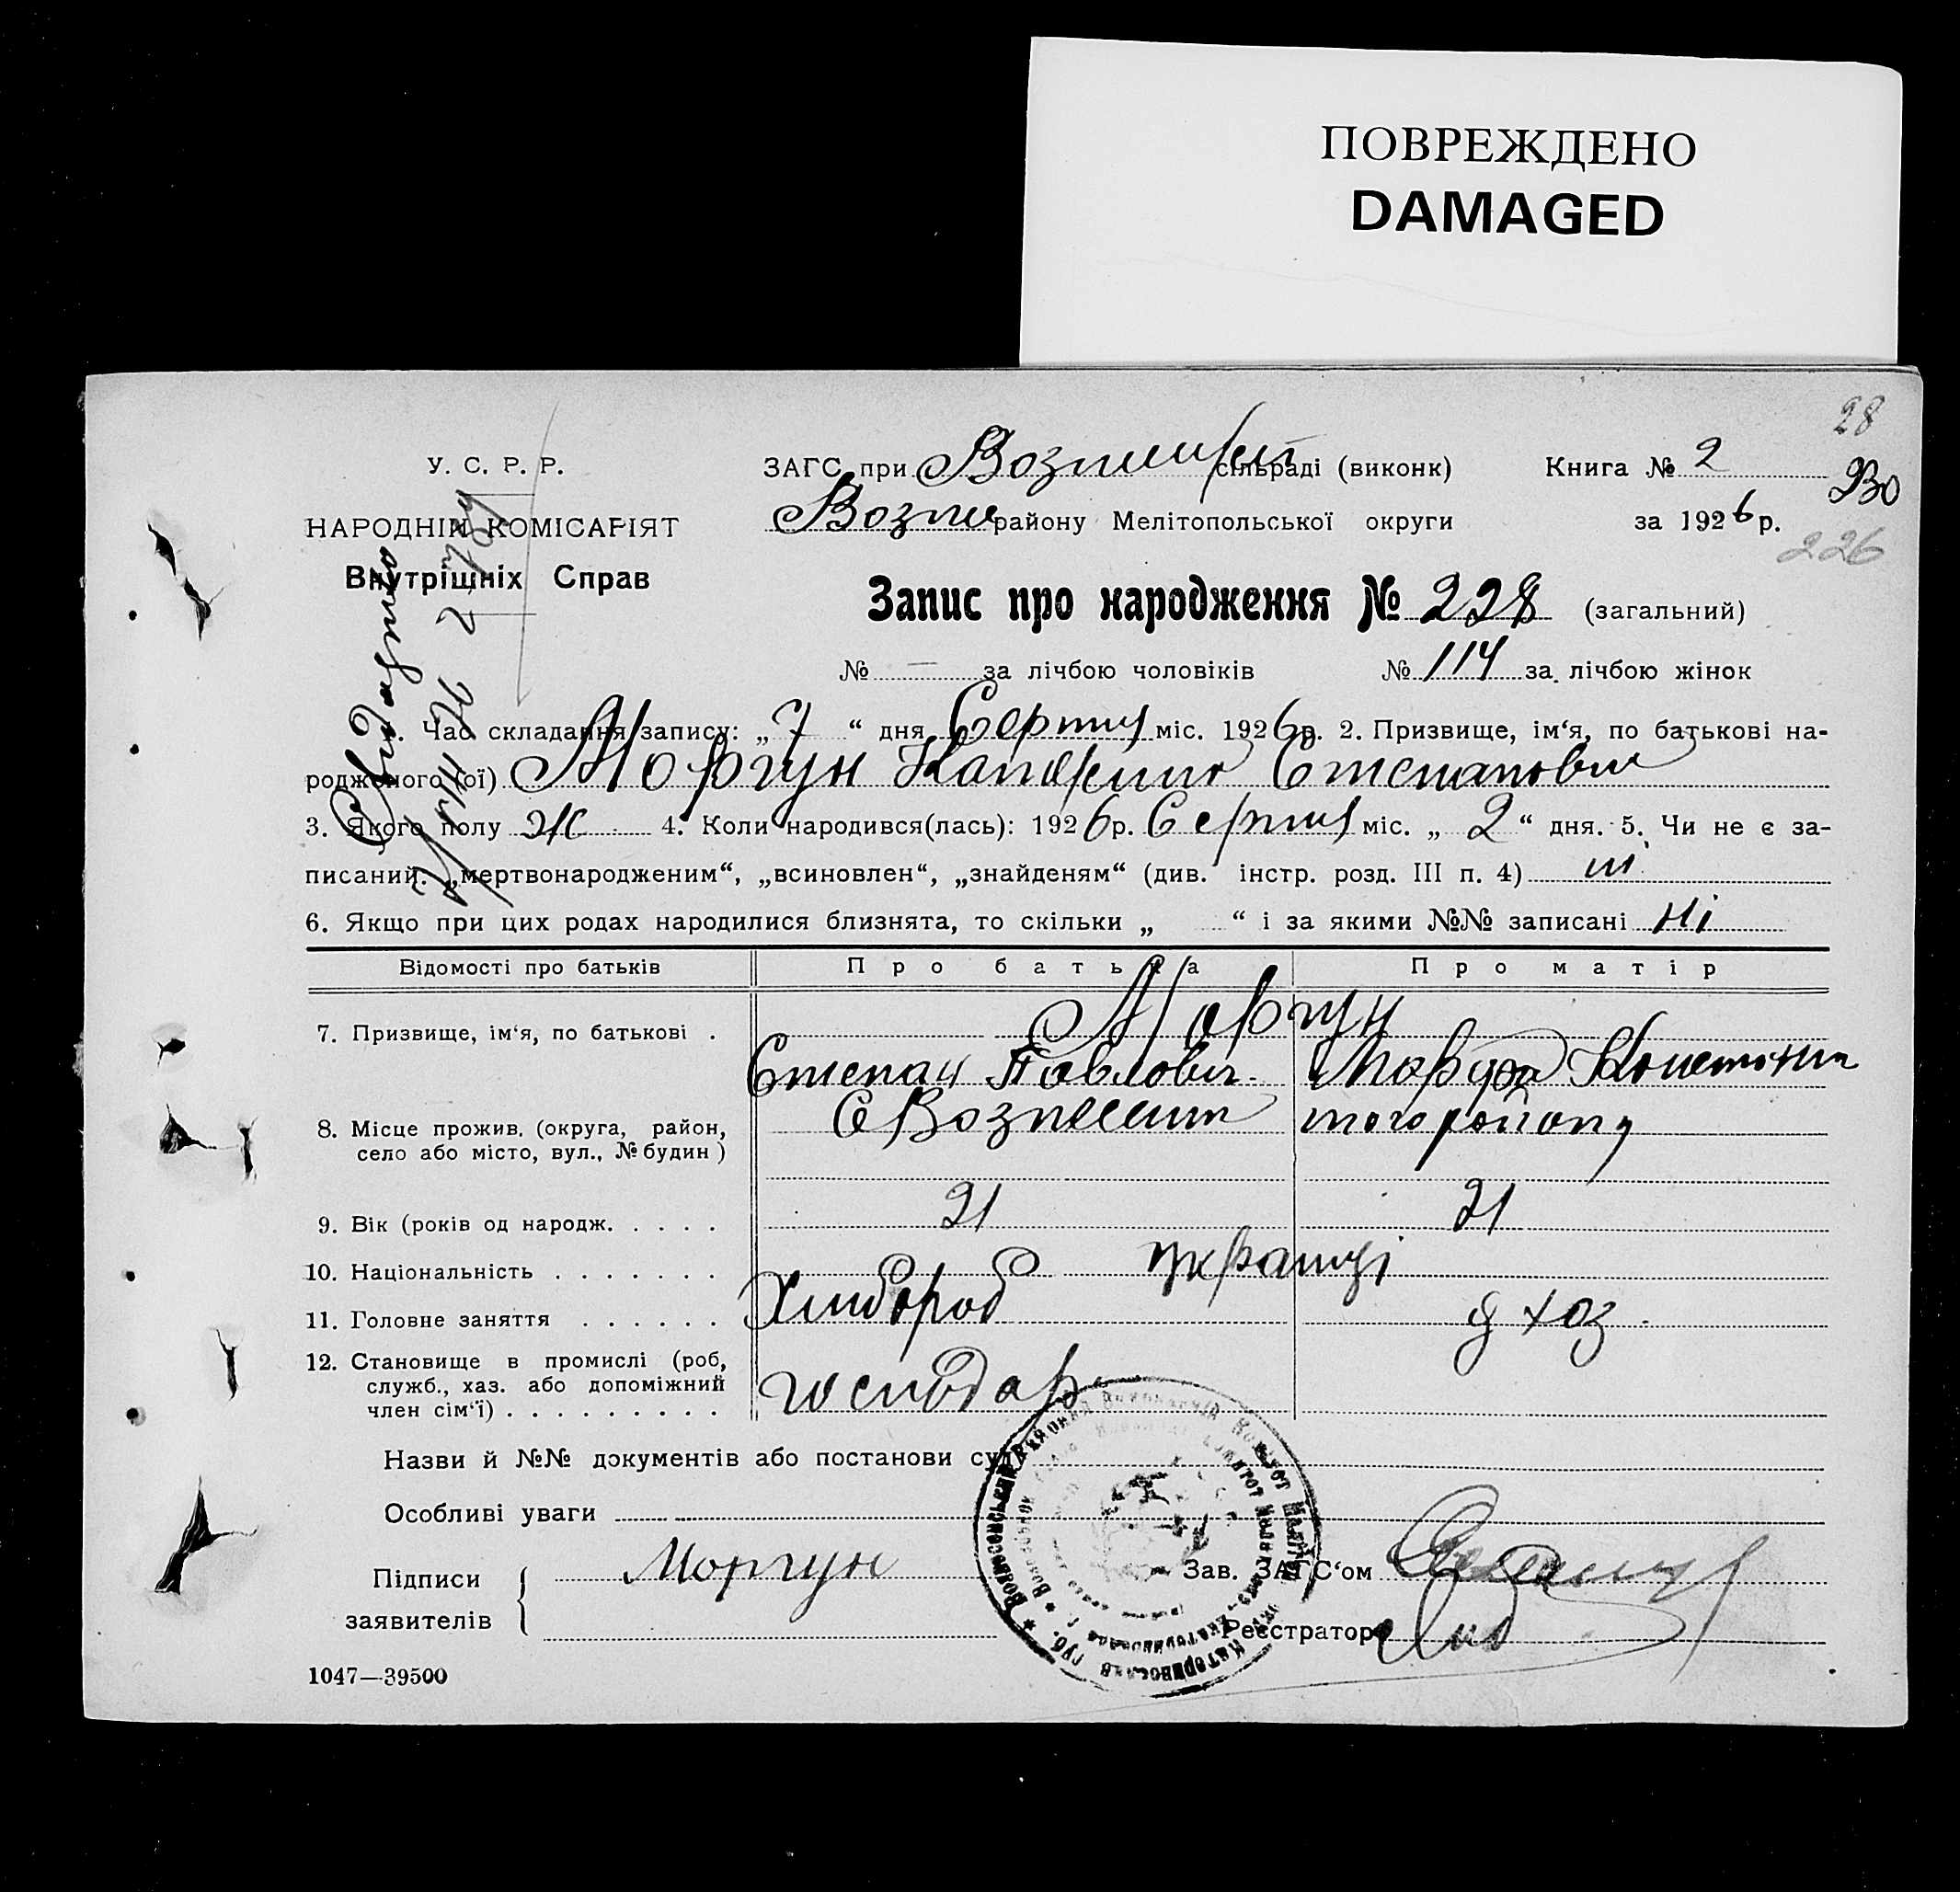 ПОВРЕЖДЕНО
DAMAGED
28
У. С. Р. Р.
ЗАГС при сільраді (виконк) Книга № 2
НАРОДНІЙ КОМІСАРІЯТ
Возне району Мелітопольської округи за 1926 р.
230
226
Внутрішніх Справ
Запис про народження № 228 (загальний)
№ — за лічбою чоловіків № 114 за лічбою жінок
1. Час складання запису: „ 7 “ дня Серпня міс. 1926 р. 2. Призвище, ім‘я, по батькові на-
родженого (ої) Моргун Степановна
3. Якого полу Ж 4. Коли народився(лась): 1926 р. Серпня міс. „ 2 “ дня. 5. Чи не є за-
писаний: „мертвонародженим“, „всиновлен“, „знайденям“ (див. інстр. розд. III п. 4) ні
6. Якщо при цих родах народилися близнята, то скільки „ “ і за якими №№ записані Ні
Відомості про батьків Про батька Про матір
Моргун
7. Призвище, ім‘я, по батькові .
Степан Павлович Марфа
8. Місце прожив. (округа, район, село або місто, вул., № будин)
С Вознесенк того району
9. Вік (років од народж. . . . . 21 21
10. Національність . . . . . . . українці
11. Головне заняття . . . . . . Хлібороб д хоз.
12. Становище в промислі (роб, служб., хаз. або допоміжний член сім‘ї) . . . . . . . . . господар
Назви й №№ документів або постанови суду
Особливі уваги
Підписи заявителів Моргун
Зав. ЗАГС‘ом
Реєстратор
1047—39500